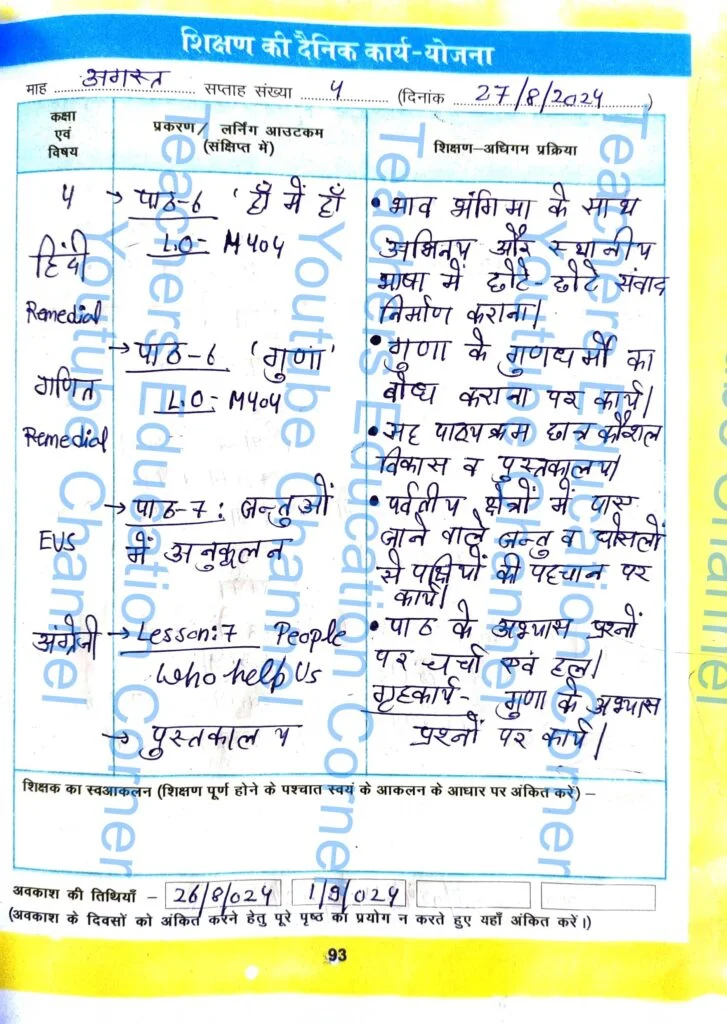 शिक्षण की दैनिक कार्य-योजना
माह अगस्त सप्ताह संख्या 4 (दिनांक 27/8/2024)
कक्षा एवं विषय
प्रकरण/ लर्निंग आउटकम (संक्षिप्त में)
शिक्षण-अधिगम प्रक्रिया
4 → पाठ-6 'हाँ में हाँ
हिंदी L.O- M404
Remedial
• भाव भंगिमा के साथ
अभिनय और स्थानीय
भाषा में छोटे-छोटे संवाद
निर्माण कराना।
→ पाठ-6 'गुणा'
गणित L.O- M404
Remedial
• गुणा के गुणधर्मो का
बोध कराना पर कार्य।
• सह पाठ्यक्रम छात्र कौशल
विकास व पुस्तकालय।
→ पाठ-7: जन्तुओं
EVS में अनुकूलन
• पर्वतीय क्षेत्रों में पाए
जाने वाले जन्तु व घोसलों
से पक्षियों की पहचान पर
कार्य।
अंग्रेजी → Lesson:7 People
Who help Us
• पाठ के अभ्यास प्रश्नों
पर चर्चा एवं हल।
→ पुस्तकालय
गृहकार्य- गुणा के अभ्यास
प्रश्नों पर कार्य।
शिक्षक का स्वआकलन (शिक्षण पूर्ण होने के पश्चात स्वयं के आकलन के आधार पर अंकित करें) –
अवकाश की तिथियाँ – 26/8/024 1/9/024
(अवकाश के दिवसों को अंकित करने हेतु पूरे पृष्ठ का प्रयोग न करते हुए यहाँ अंकित करें।)
93
Teachers Education Corner
Youtube Channel
Teachers Education Corner
Youtube Channel
Teachers Education Corner